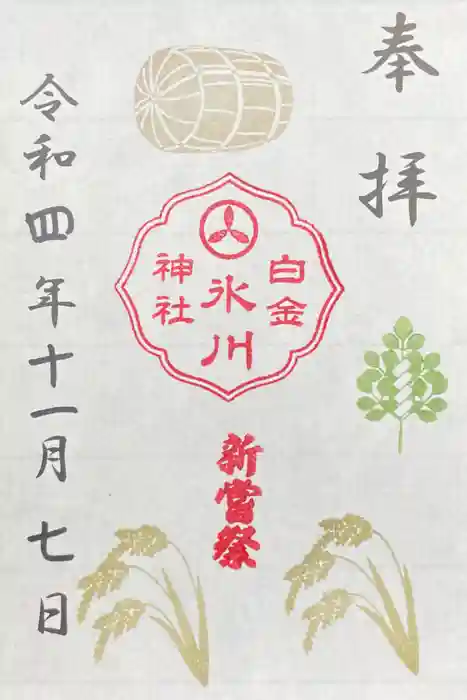 奉拝
白金
氷川
神社
新嘗祭
令和四年十一月七日